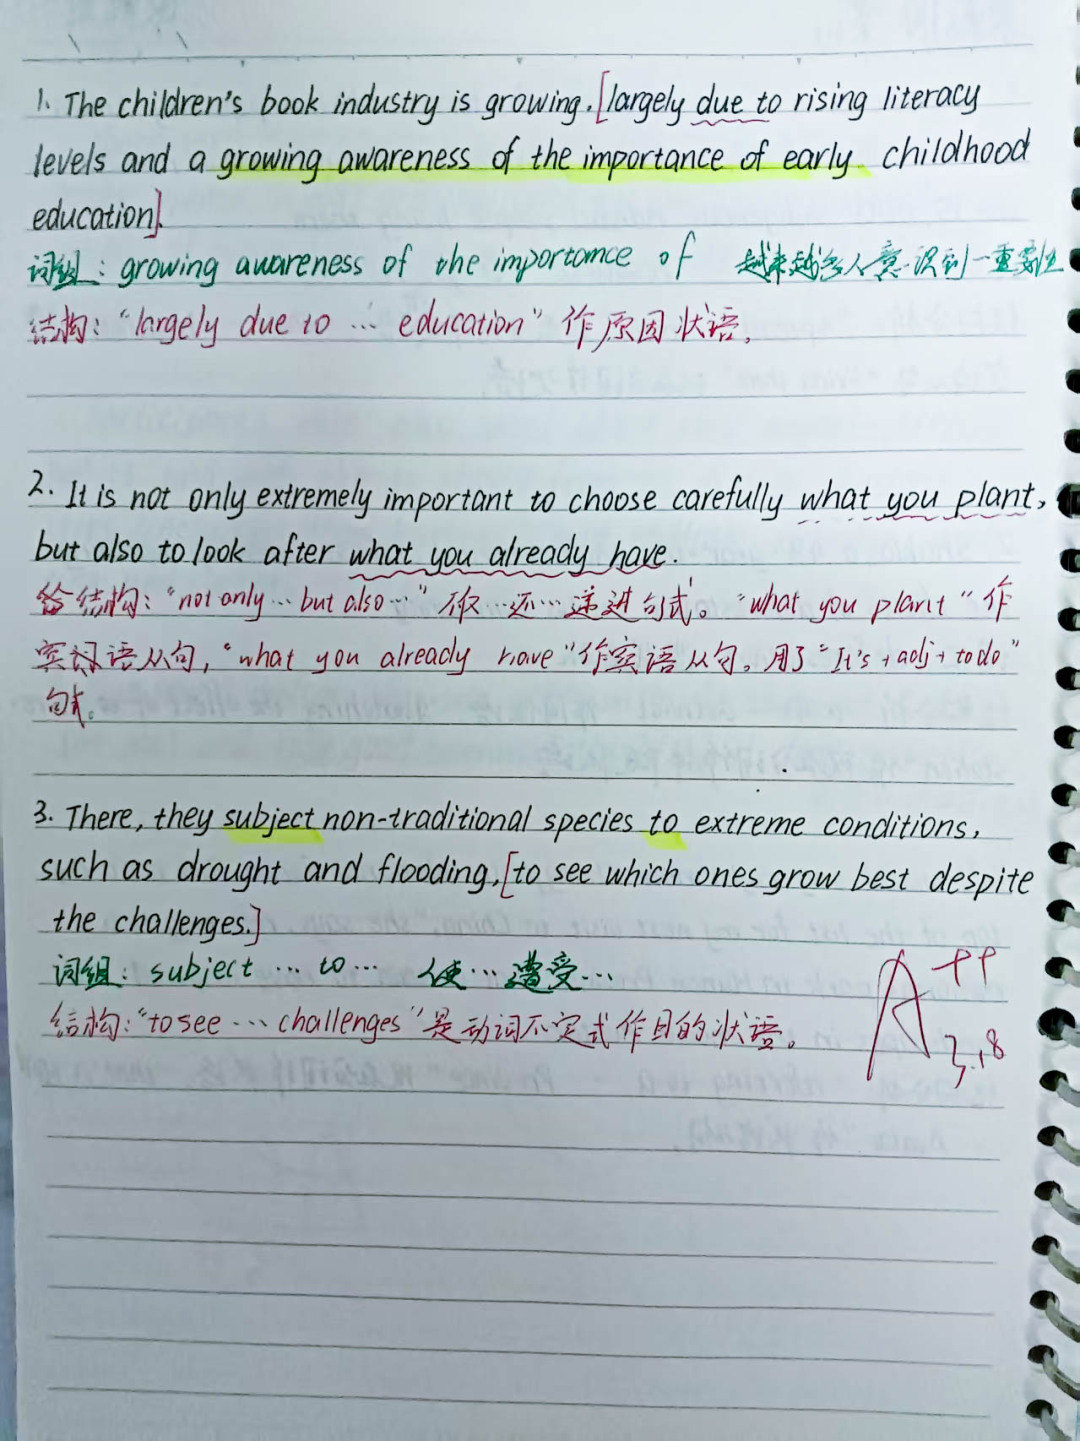 1. The children's book industry is growing, [largely due to rising literacy
levels and a growing awareness of the importance of early childhood
education].
词组: growing awareness of the importance of 越来越多人意识到…重要性
结构: "largely due to … education" 作原因状语.
2. It is not only extremely important to choose carefully what you plant,
but also to look after what you already have.
结构: "not only … but also …" 不仅…还…递进句式。"what you plant" 作
宾语从句, "what you already have" 作宾语从句。用了 "It's + adj + to do"
句式。
3. There, they subject non-traditional species to extreme conditions,
such as drought and flooding, [to see which ones grow best despite
the challenges.]
词组: subject … to … 使…遭受…
结构: "to see … challenges" 是动词不定式作目的状语。
A++
3.18